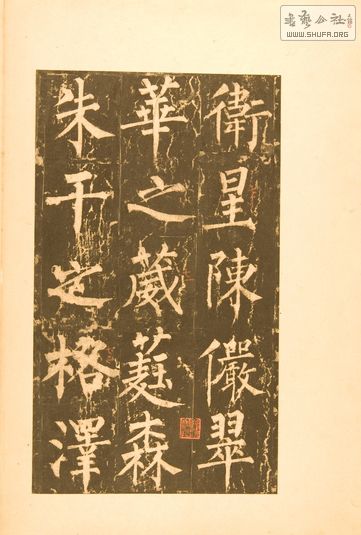 書藝公社
WWW.SHUFA.ORG
衛星陳儼翠
華之葳蕤森
朱干之格澤